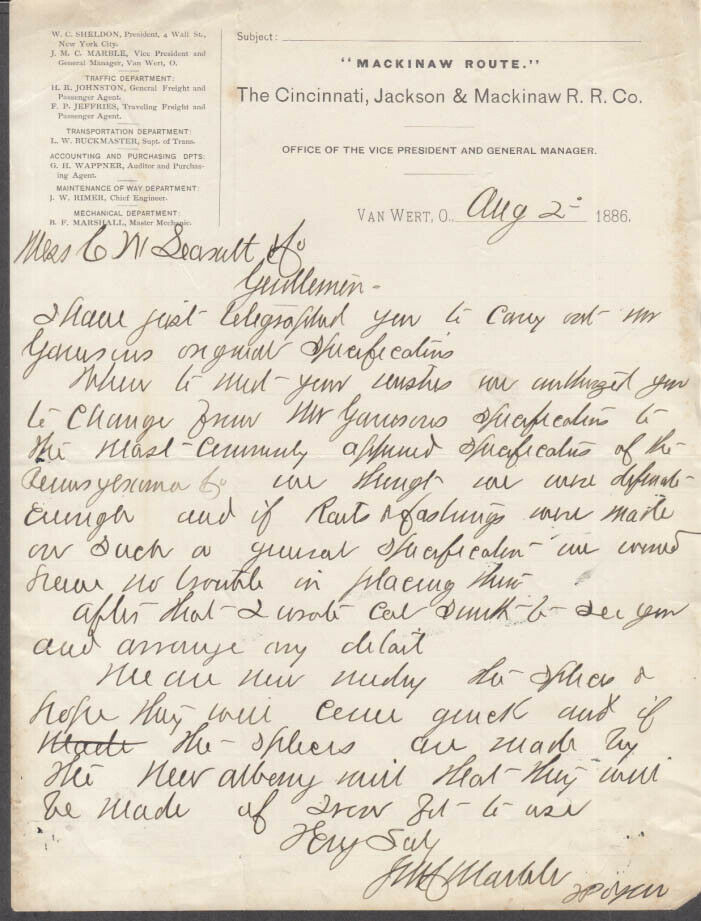 W. C. SHELDON, President, 4 Wall St.,
New York City.
J. M. C. MARBLE, Vice President and
General Manager, Van Wert, O.
TRAFFIC DEPARTMENT:
H. R. JOHNSTON, General Freight and
Passenger Agent.
F. P. JEFFRIES, Traveling Freight and
Passenger Agent.
TRANSPORTATION DEPARTMENT:
L. W. BUCKMASTER, Supt. of Trans.
ACCOUNTING AND PURCHASING DPTS:
G. H. WAPPNER, Auditor and Purchas-
ing Agent.
MAINTENANCE OF WAY DEPARTMENT:
J. W. RIMER, Chief Engineer.
MECHANICAL DEPARTMENT:
B. F. MARSHALL, Master Mechanic.
Subject:
"MACKINAW ROUTE."
The Cincinnati, Jackson & Mackinaw R. R. Co.
OFFICE OF THE VICE PRESIDENT AND GENERAL MANAGER.
VAN WERT, O., Aug 2 1886.
Mess C W & Co
Gentlemen -
I have just telegraphed you to carry out Mr
original specifications
When to meet your wishes we authorized you
to change from Mr specifications to
the most commonly approved specifications of the
Pennsylvania Co we thought we were definite
enough and if Rails & fastnings were made
on such a general specification we would
have no trouble in placing them
after that I wrote Col Smith to see you
and arrange any detail
We are now needing the splices &
hope they will come quick and if
made the splices are made by
the New albany mill that they will
be made of Iron fit to use
Very Truly
JMC Marble